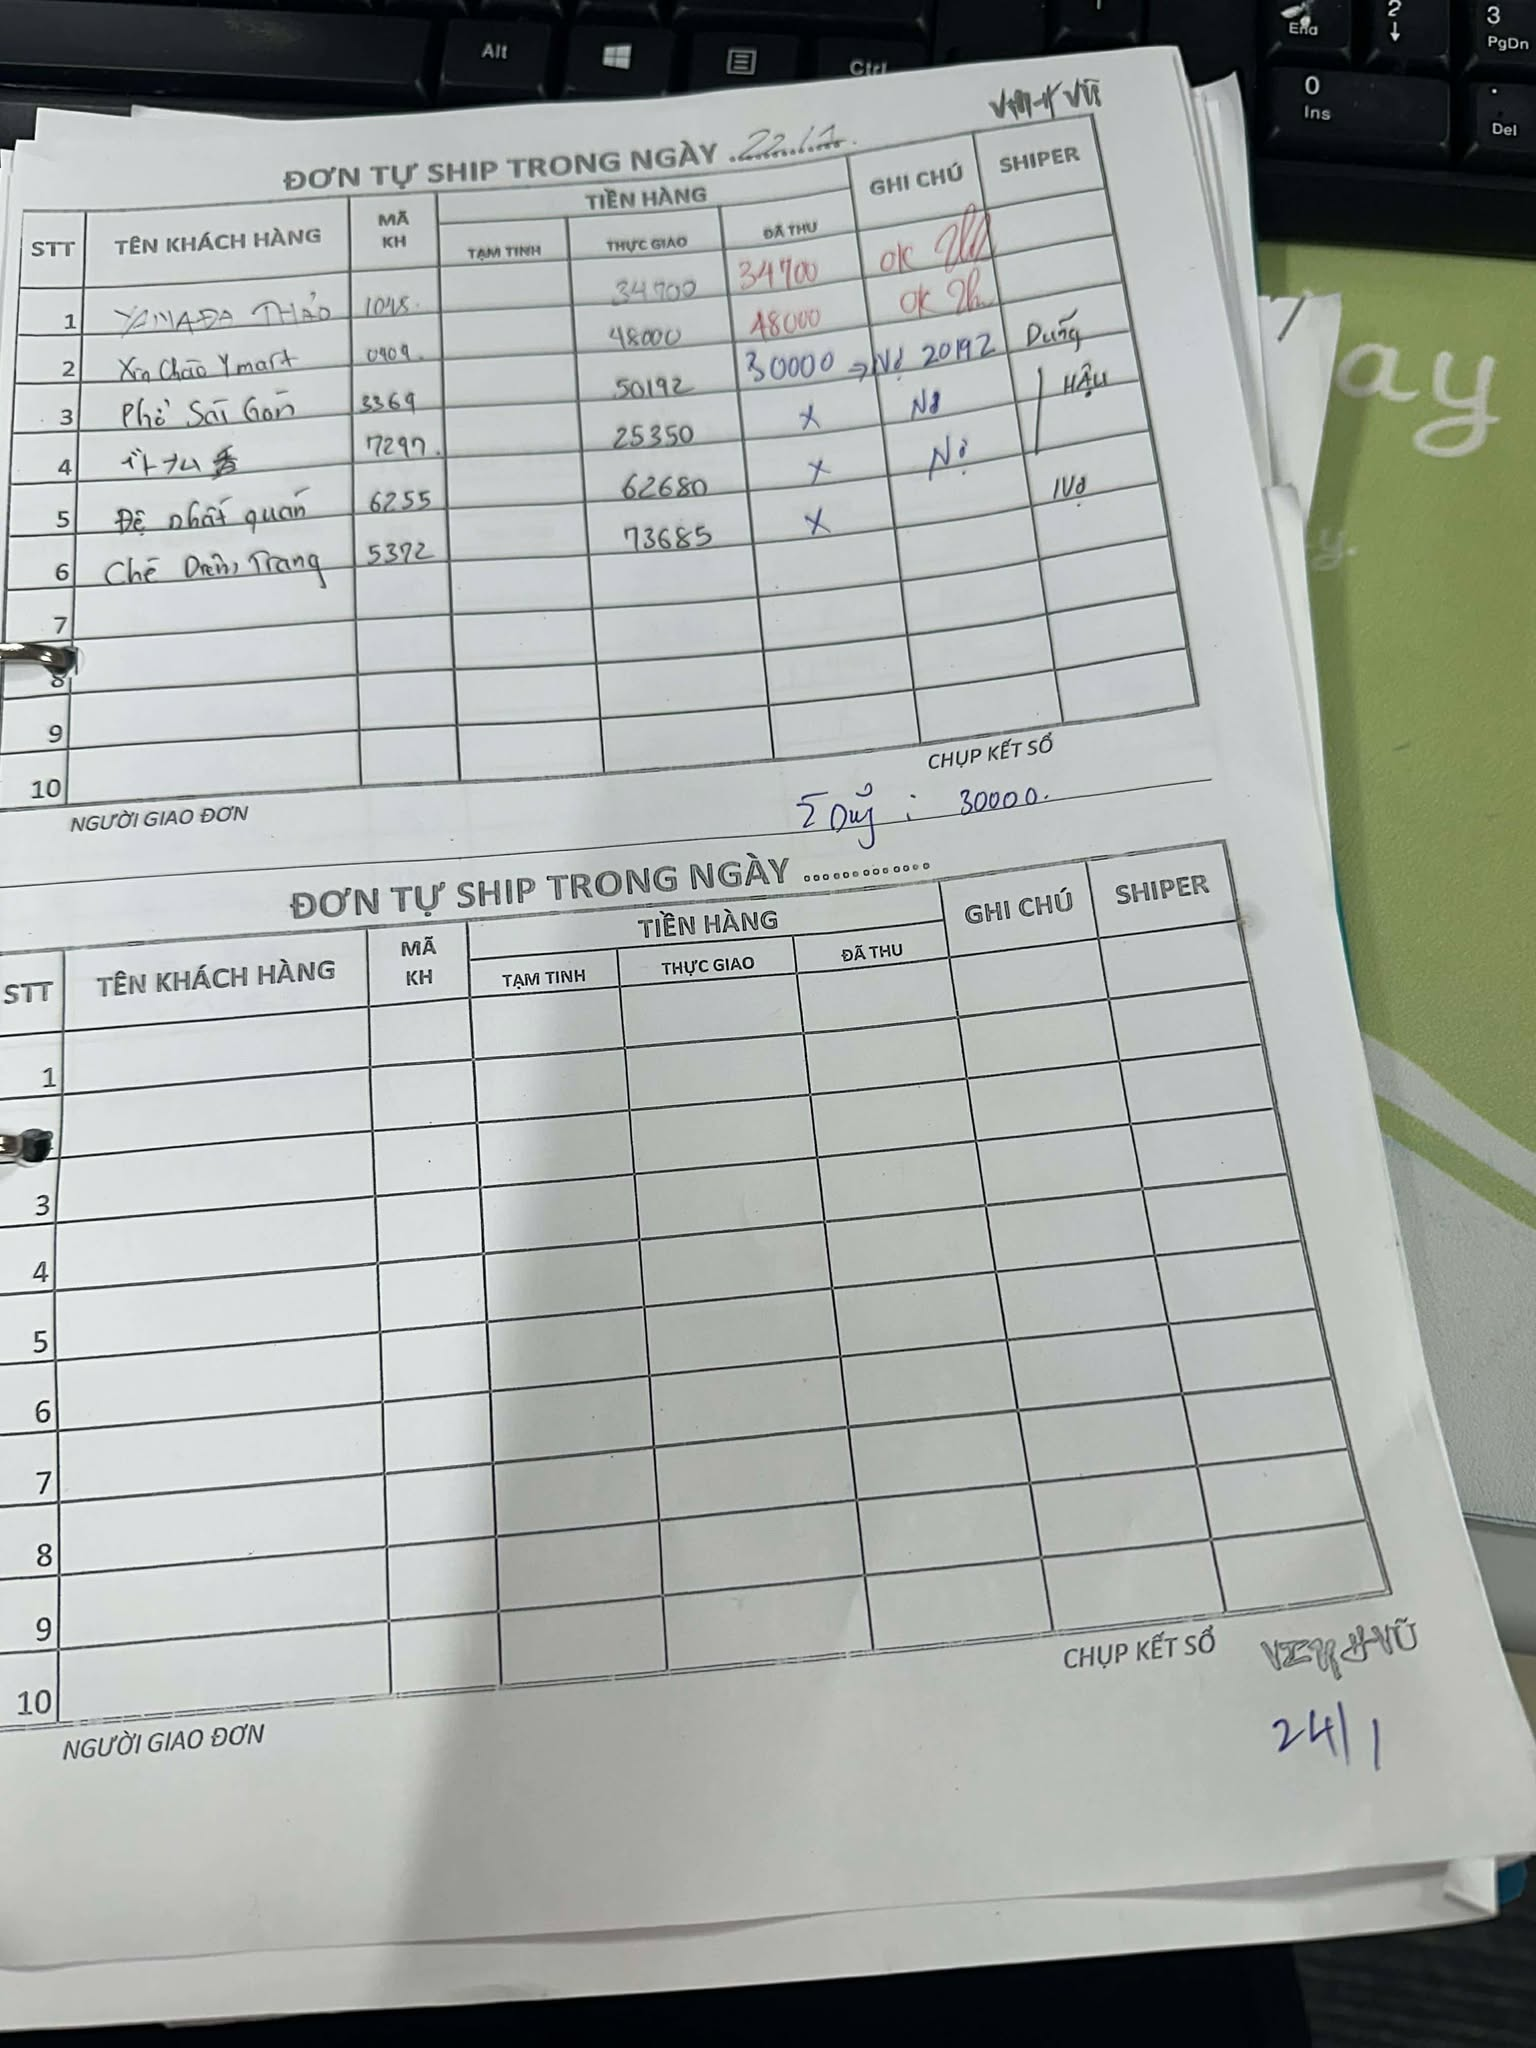 Alt
Ctrl
End
2
3
PgDn
0
Ins
.
Del
ay
y.
VŨ
ĐƠN TỰ SHIP TRONG NGÀY 22/1
STT TÊN KHÁCH HÀNG MÃ KH TIỀN HÀNG GHI CHÚ SHIPER
TẠM TINH THỰC GIAO ĐÃ THU
1 YAMADA THẢO 34700 34700 OK
2 Xin Chào Y mart 0909 48000 48000 OK
3 Phở Sài Gòn 3369 50192 30000 => Nợ 20192
4 7297 25350 X Nợ HẬU
5 Đệ nhất quán 6255 62680 X Nợ
6 Chè Trang 5372 73685 X Nợ
7
8
9
10
NGƯỜI GIAO ĐƠN CHỤP KẾT SỔ
: 30000.
ĐƠN TỰ SHIP TRONG NGÀY .............
STT TÊN KHÁCH HÀNG MÃ KH TIỀN HÀNG GHI CHÚ SHIPER
TẠM TINH THỰC GIAO ĐÃ THU
1
3
4
5
6
7
8
9
10
NGƯỜI GIAO ĐƠN CHỤP KẾT SỔ
VŨ
24/1